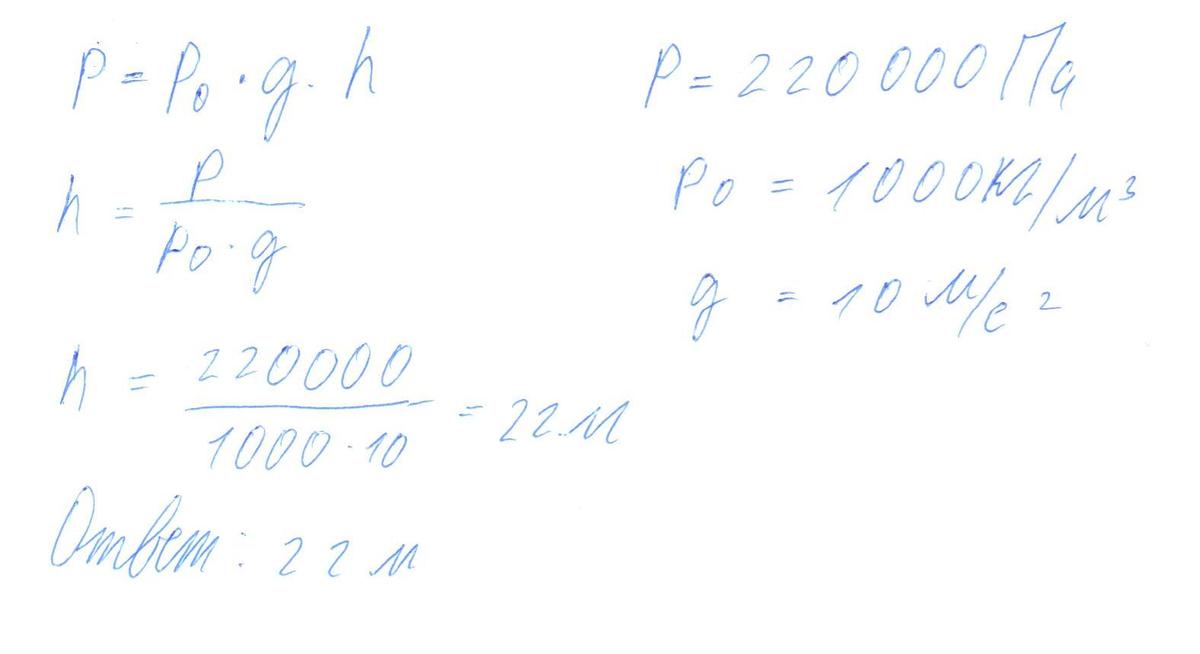 p = p₀ · g · h
h = p / (p₀ · g)
h = 220000 / (1000 · 10) = 22 м
Ответ: 22 м
p = 220 000 Па
p₀ = 1000 кг/м³
g = 10 м/с²